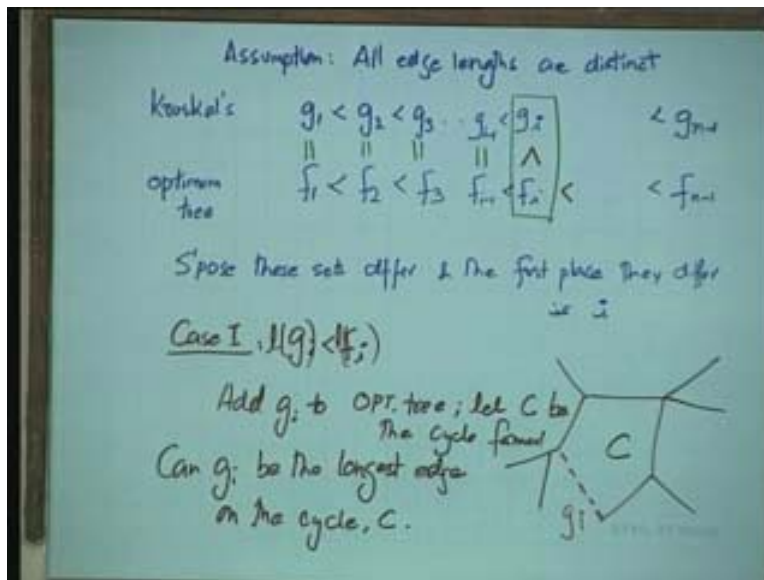 Assumption: All edge lengths are distinct
Kruskal's g₁ < g₂ < g₃ .. gᵢ₋₁ < gᵢ < gₙ₋₁
|| || || || ^
optimum f₁ < f₂ < f₃ fᵢ₋₁ < fᵢ < < fₙ₋₁
tree
S'pose these sets differ & the first place they differ
is i
Case I : l(gᵢ) < l(fᵢ)
Add gᵢ to OPT. tree ; let C be
the cycle formed
Can gᵢ be the longest edge
on the cycle, C.
C
gi